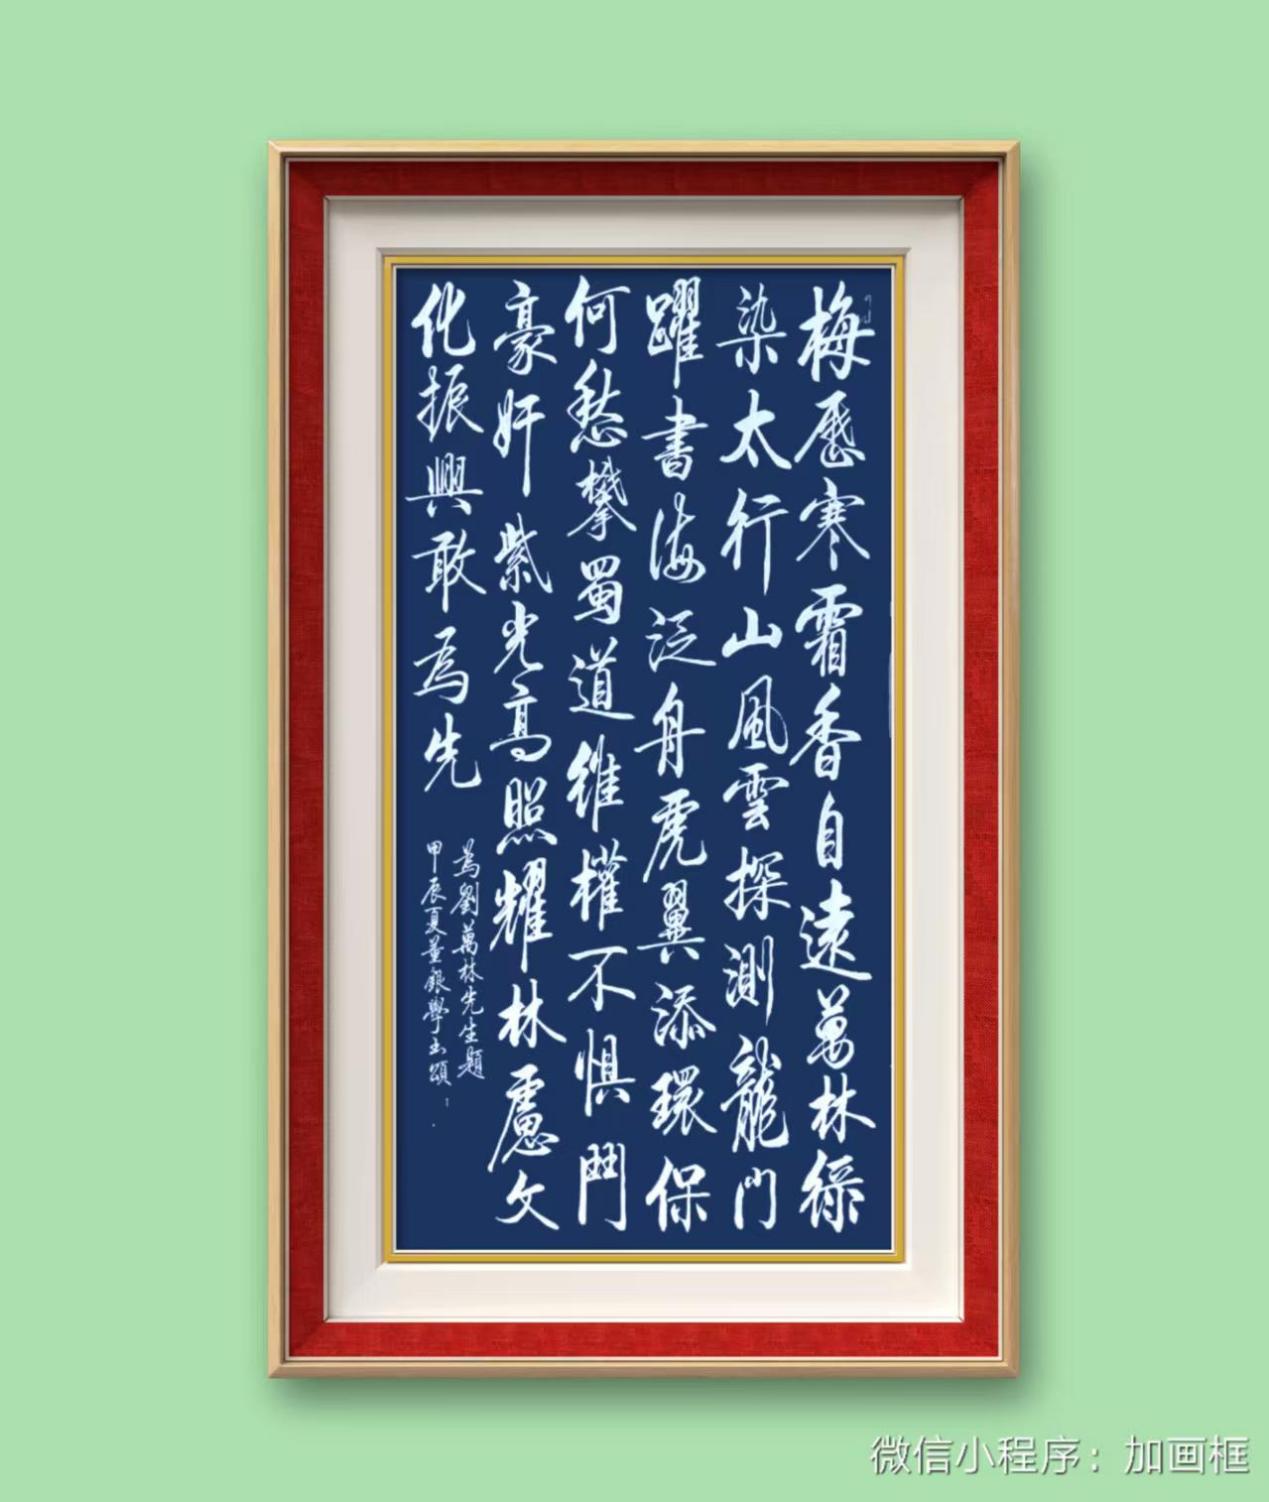 梅歷寒霜香自遠萬林綠
染太行山風雲探測龍門
躍書海泛舟虎翼添環保
何愁攀蜀道維權不懼鬥
豪奸紫光高照耀林慮文
化振興敢為先
為劉萬林先生題
甲辰夏董銀學書頌
微信小程序：加画框